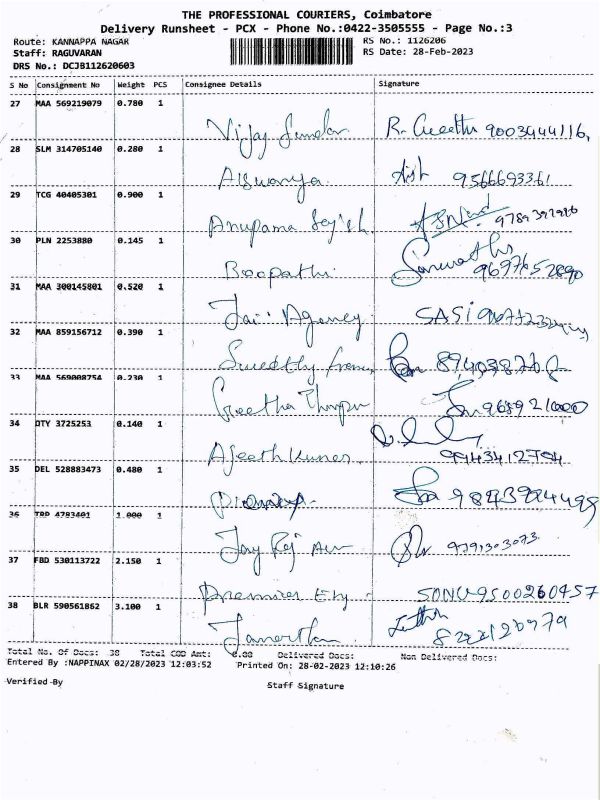 THE PROFESSIONAL COURIERS, Coimbatore
Delivery Runsheet - PCX - Phone No.:0422-3505555 - Page No.:3
Route: KANNAPPA NAGAR RS No.: 1126206
Staff: RAGUVARAN RS Date: 28-Feb-2023
DRS No.: DCJB112620603
S No Consignment No Weight PCS Consignee Details Signature
27 MAA 569219079 0.780 1
Vijay R. Geetha 9003444116,
28 SLM 314705140 0.280 1
Aiswarya. 9566693361
29 TCG 40405301 0.900 1
Anupama
30 PLN 2253880 0.145 1
Boopathi. 9697652890
31 MAA 300145801 0.520 1
Jai Agency SASI
32 MAA 859156712 0.390 1
33 MAA 569008754 0.230 1
Geetha
34 DTY 3725253 0.140 1
Ajeeth Kumar 9943412794
35 DEL 528883473 0.480 1
36 TRP 4783401 1.000 1
Jay Raj 9791303073
37 FBD 530113722 2.150 1
Premier SONU-9500260457
38 BLR 590561862 3.100 1
Total No. Of Docs: 38 Total COD Amt: 0.00 Delivered Docs: Non Delivered Docs:
Entered By :NAPPINAX 02/28/2023 12:03:52 Printed On: 28-02-2023 12:10:26
Verified By Staff Signature